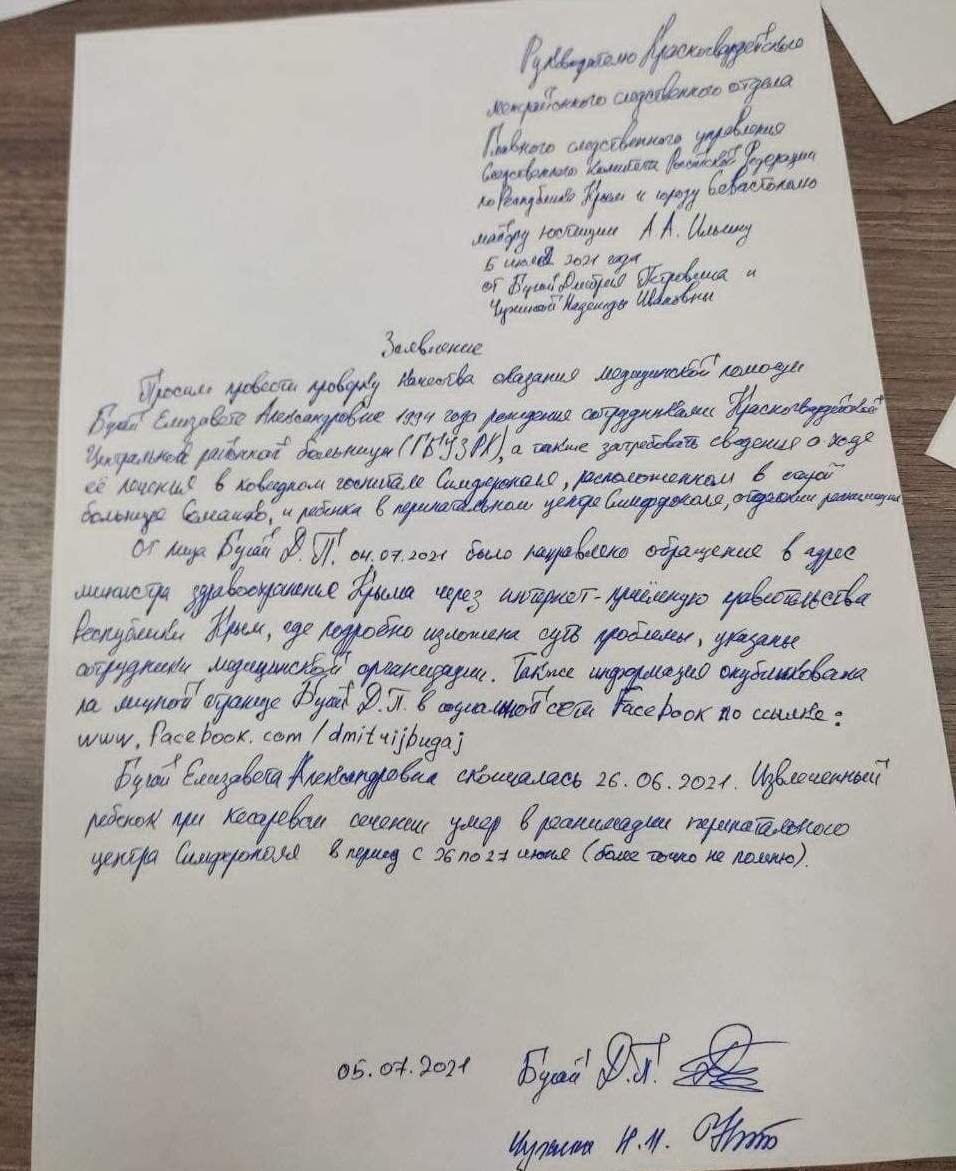 Руководителю Красногвардейского
межрайонного следственного отдела
Главного следственного управления
Следственного Комитета Российской Федерации
по Республике Крым и городу Севастополю
майору юстиции А.А. Ильину
5 июля 2021 года
от Бугай Дмитрия Петровича и
Надежды Ивановны
Заявление
Просим провести проверку качества оказания медицинской помощи
Бугай Елизавете Александровне 1994 года рождения сотрудниками Красногвардейской
Центральной районной больницы (ГБУЗРК), а также затребовать сведения о ходе
её лечения в ковидном госпитале Симферополя, расположенном в
больнице Семашко, и ребенка в перинатальном центре Симферополя, отделении реанимации
От лица Бугай Д.П. 04.07.2021 было направлено обращение в адрес
министра здравоохранения Крыма через интернет-приёмную правительства
Республики Крым, где подробно изложена суть проблемы, указаны
сотрудники медицинской организации. Также информация опубликована
на личной странице Бугай Д.П. в социальной сети Facebook по ссылке:
www.facebook.com/dmitrijbugaj
Бугай Елизавета Александровна скончалась 26.06.2021. Извлеченный
ребенок при кесаревом сечении умер в реанимации перинатального
центра Симферополя в период с 26 по 27 июня (более точно не помню).
05.07.2021 Бугай Д.П.
Н.И.